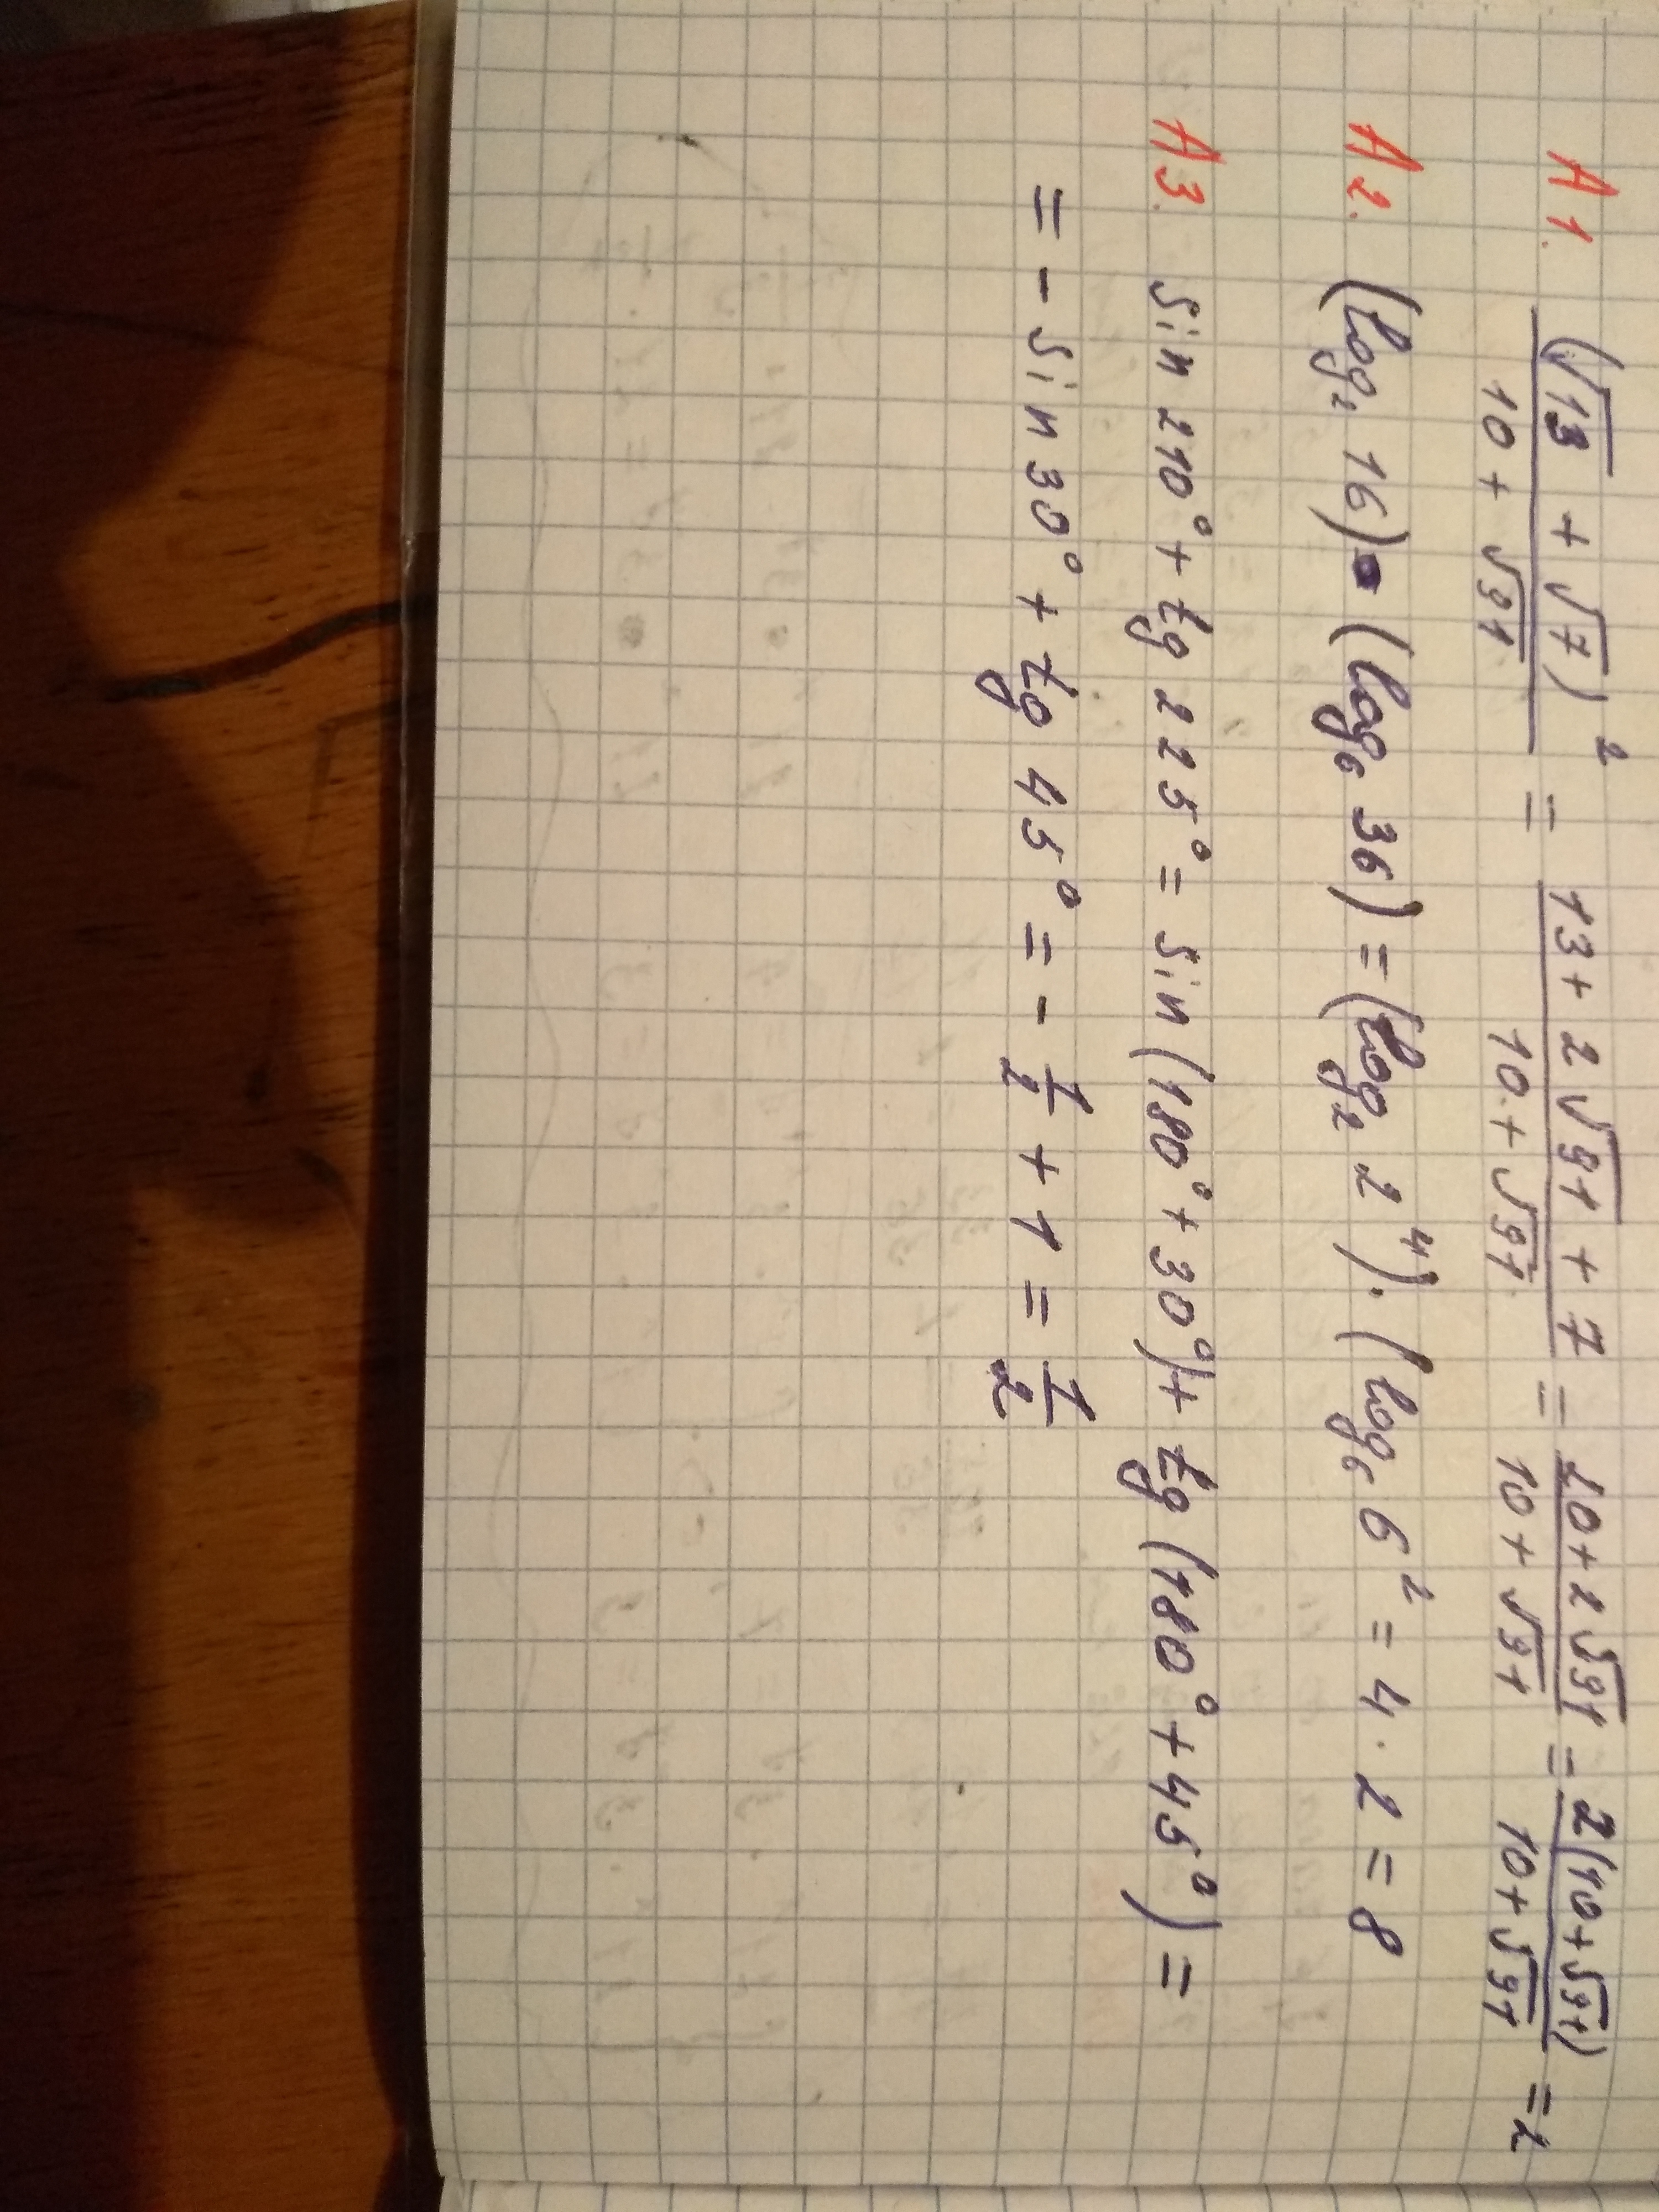 A1. (√13 + √7)² / (10 + √91) = (13 + 2√91 + 7) / (10 + √91) = (20 + 2√91) / (10 + √91) = 2(10 + √91) / (10 + √91) = 2
A2. (log₂ 16) · (log₆ 36) = (log₂ 2⁴) · (log₆ 6² = 4 · 2 = 8
A3. Sin 210° + tg 225° = Sin (180° + 30°) + tg (180° + 45°) =
= - Sin 30° + tg 45° = - 1/2 + 1 = 1/2